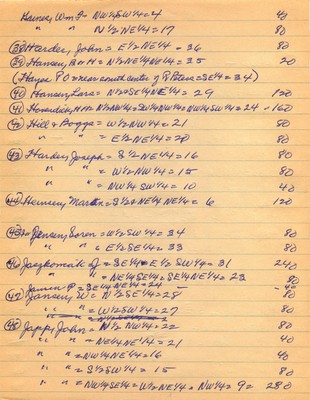 Hansen, Wm F = NW¼SW¼ = 4 40
" " N½NE¼ = 17 80
(38) Harder, John = E½NE¼ = 36 80
(39) Hansen, = N½NW¼NW¼ = 35 20
(Hayes PO = near south center of = SE¼ = 34)
(40) Hansen, Lars = N½SE¼NE¼ = 29 120
(41) = SW¼NW¼ = NW¼SW¼ = 24 - 160
(42) Hill & Boggs = W½NW¼ = 21 80
" " = E½NE¼ = 20 80
(43) Harder, Joseph = S½NE¼ = 16 80
" " = W½NW¼ = 15 80
" " = NW¼SW¼ = 10 40
(44) Heinsen, Martin = S½NE¼ NE¼ = 6 120
(45) Jensen, Soren = W½SW¼ = 34 80
" " = E½SE¼ = 33 80
(46) Jaszkowiak = SE¼ = E½SW¼ = 31 240
" " = NE¼SE¼ = SE¼NE¼ = 23 80
Jansen P = SE¼NE¼ = 24 - 40
(47) Jansen, W = N½SE¼ = 28 80
" " = W½SW¼ = 27 80
(48) Japp, John = N½NW¼ = 22 80
" " = NE¼NE¼ = 21 40
" " = NW¼NE¼ = 16 40
" " = S½SW¼ = 15 80
" " = NW¼SE¼ = W½NE¼ = NW¼ = 9 = 280